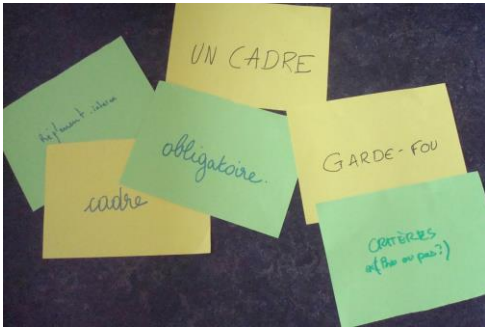 UN CADRE
Réglement intérieur
obligatoire.
GARDE-FOU
cadre
CRITÈRES
ou pas?)